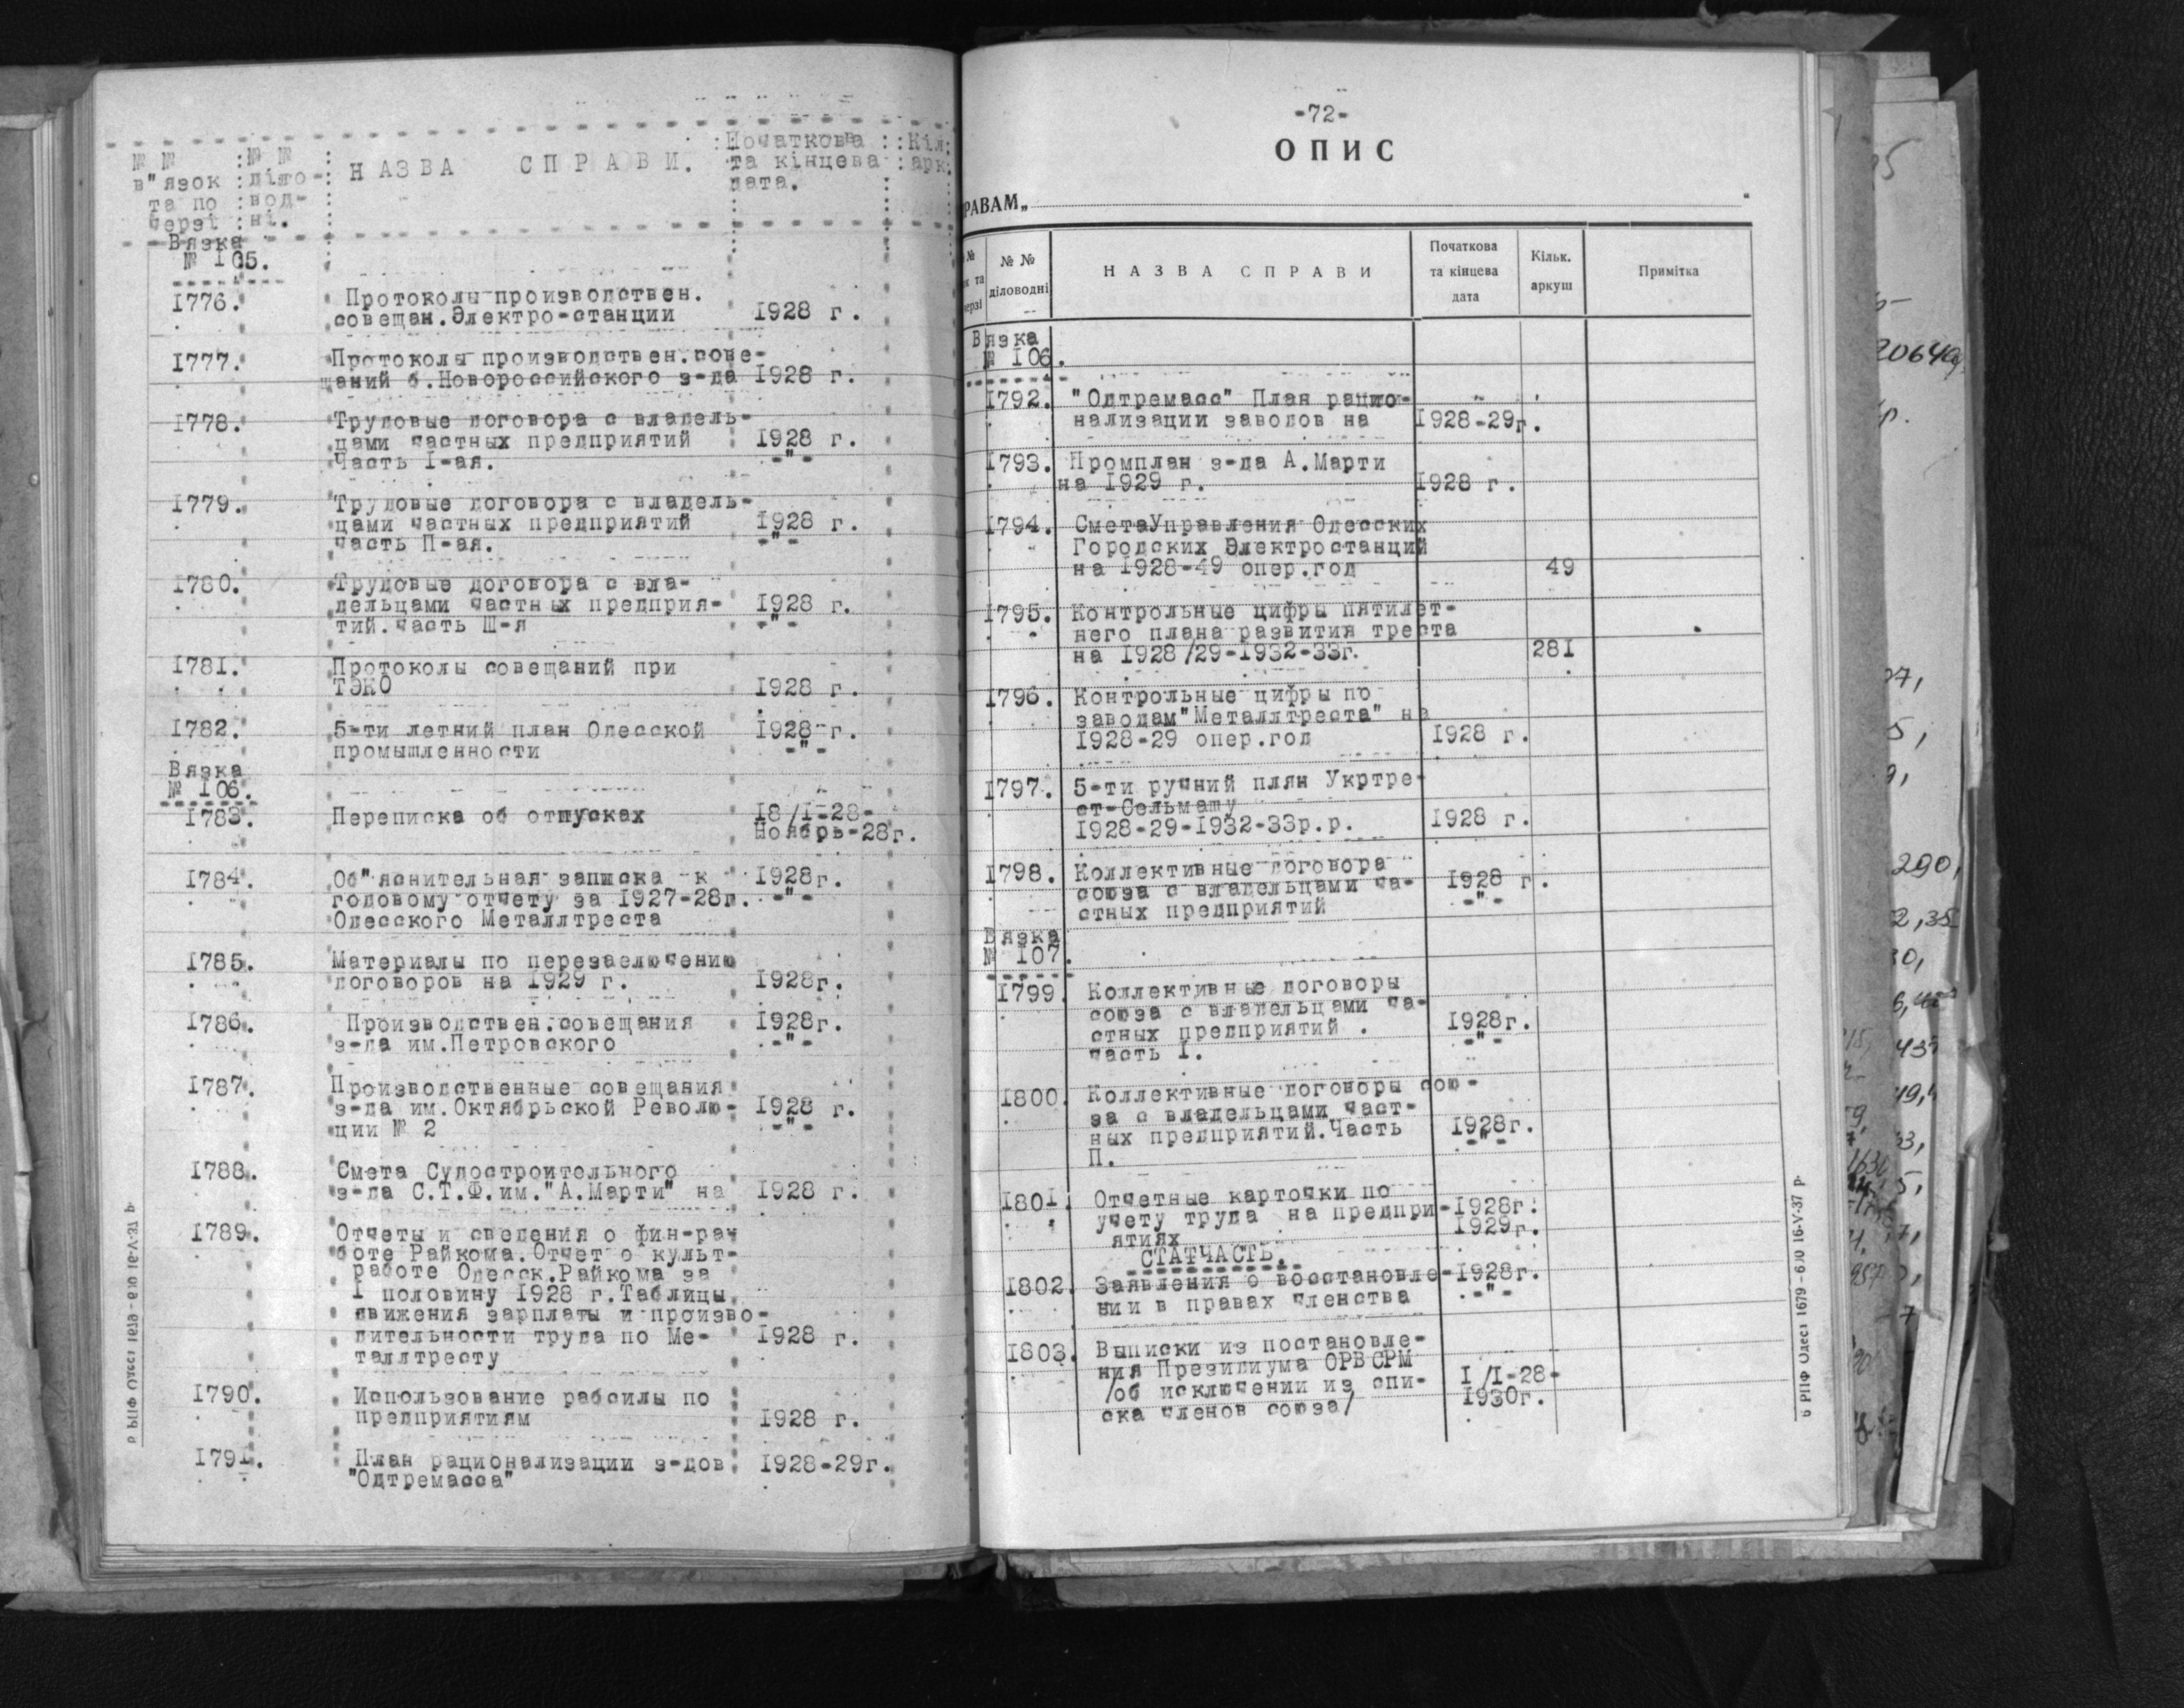 № № :№ № : НАЗВА СПРАВИ. :Початкова :Кіл:
в"язок :діло-: та кінцева :арк.
та по :вод- : дата.
черзі :ні. :
Вязка
№ 105.
1776. Протоколы производствен.
совещан.Электро-станции 1928 г.
1777. Протоколы производствен.сове-
щаний б.Новороссийского з-да 1928 г.
1778. Трудовые договора с владель-
цами частных предприятий 1928 г.
Часть I-ая. -"-
1779. Трудовые договора с владель-
цами частных предприятий 1928 г.
часть П-ая. -"-
1780. Трудовые договора с вла-
дельцами частных предприя- 1928 г.
тий.часть Ш-я -"-
1781. Протоколы совещаний при
ТЭКО 1928 г.
1782. 5-ти летний план Одесской 1928-г.
промышленности -"-
Вязка
№ 106.
1783. Переписка об отпусках 18/I-28-
Ноябрь-28г.
1784. Об"яснительная записка к 1928г.
годовому отчету за 1927-28г. -"-
Одесского Металлтреста
1785. Материалы по перезаключению
договоров на 1929 г. 1928г.
1786. Производствен.совещания 1928г.
з-да им.Петровского -"-
1787. Производственные совещания
з-да им.Октябрьской Револю- 1928 г.
ции № 2 -"-
1788. Смета Судостроительного
з-да С.Т.Ф.им."А.Марти" на 1928 г.
1789. Отчеты и сведения о фин-ра-
боте Райкома.Отчет о культ-
работе Одесск.Райкома за
I половину 1928 г.Таблицы
движения зарплаты и произво-
дительности труда по Ме- 1928 г.
таллтресту
1790. Использование рабсилы по
предприятиям 1928 г.
1791. План рационализации з-дов 1928-29г.
"Одтремасса"
-72-
ОПИС
РАВАМ„
№ № № НАЗВА СПРАВИ Початкова та кінцева дата Кільк. аркуш Примітка
к та ерзі діловодні
Вязка
№ 106.
1792. "Одтремасс" План рацио-
нализации заводов на 1928-29г.
1793. Промплан з-да А.Марти
на 1929 г. 1928 г.
1794. СметаУправления Одесских
Городских Электростанций
на 1928-49 опер.год 49
1795. Контрольные цифры пятилет-
него плана развития треста
на 1928/29-1932-33г. 281
1796. Контрольные цифры по
заводам"Металлтреста" на
1928-29 опер.год 1928 г.
1797. 5-ти ручний плян Укртре-
ст-Сельмашу
1928-29-1932-33р.р. 1928 г.
1798. Коллективные договора
союза с владельцами ча- 1928 г.
стных предприятий -"-
Вязка
№ 107.
1799. Коллективные договоры
союза с владельцами ча-
стных предприятий . 1928г.
часть I. -"-
1800. Коллективные договоры сою-
за с владельцами част-
ных предприятий.Часть 1928г.
П. -"-
1801. Отчетные карточки по
учету труда на предпри-1928г.
ятиях 1929г.
СТАТЧАСТЬ.
1802. Заявления о восстановле-1928г.
нии в правах членства -"-
1803. Выписки из постановле-
ния Президиума ОРВСРМ
/об исключении из спи- I/I-28-
ска членов союза/ 1930г.
6 РПФ Одеса 1679–600 16-V-37 р.